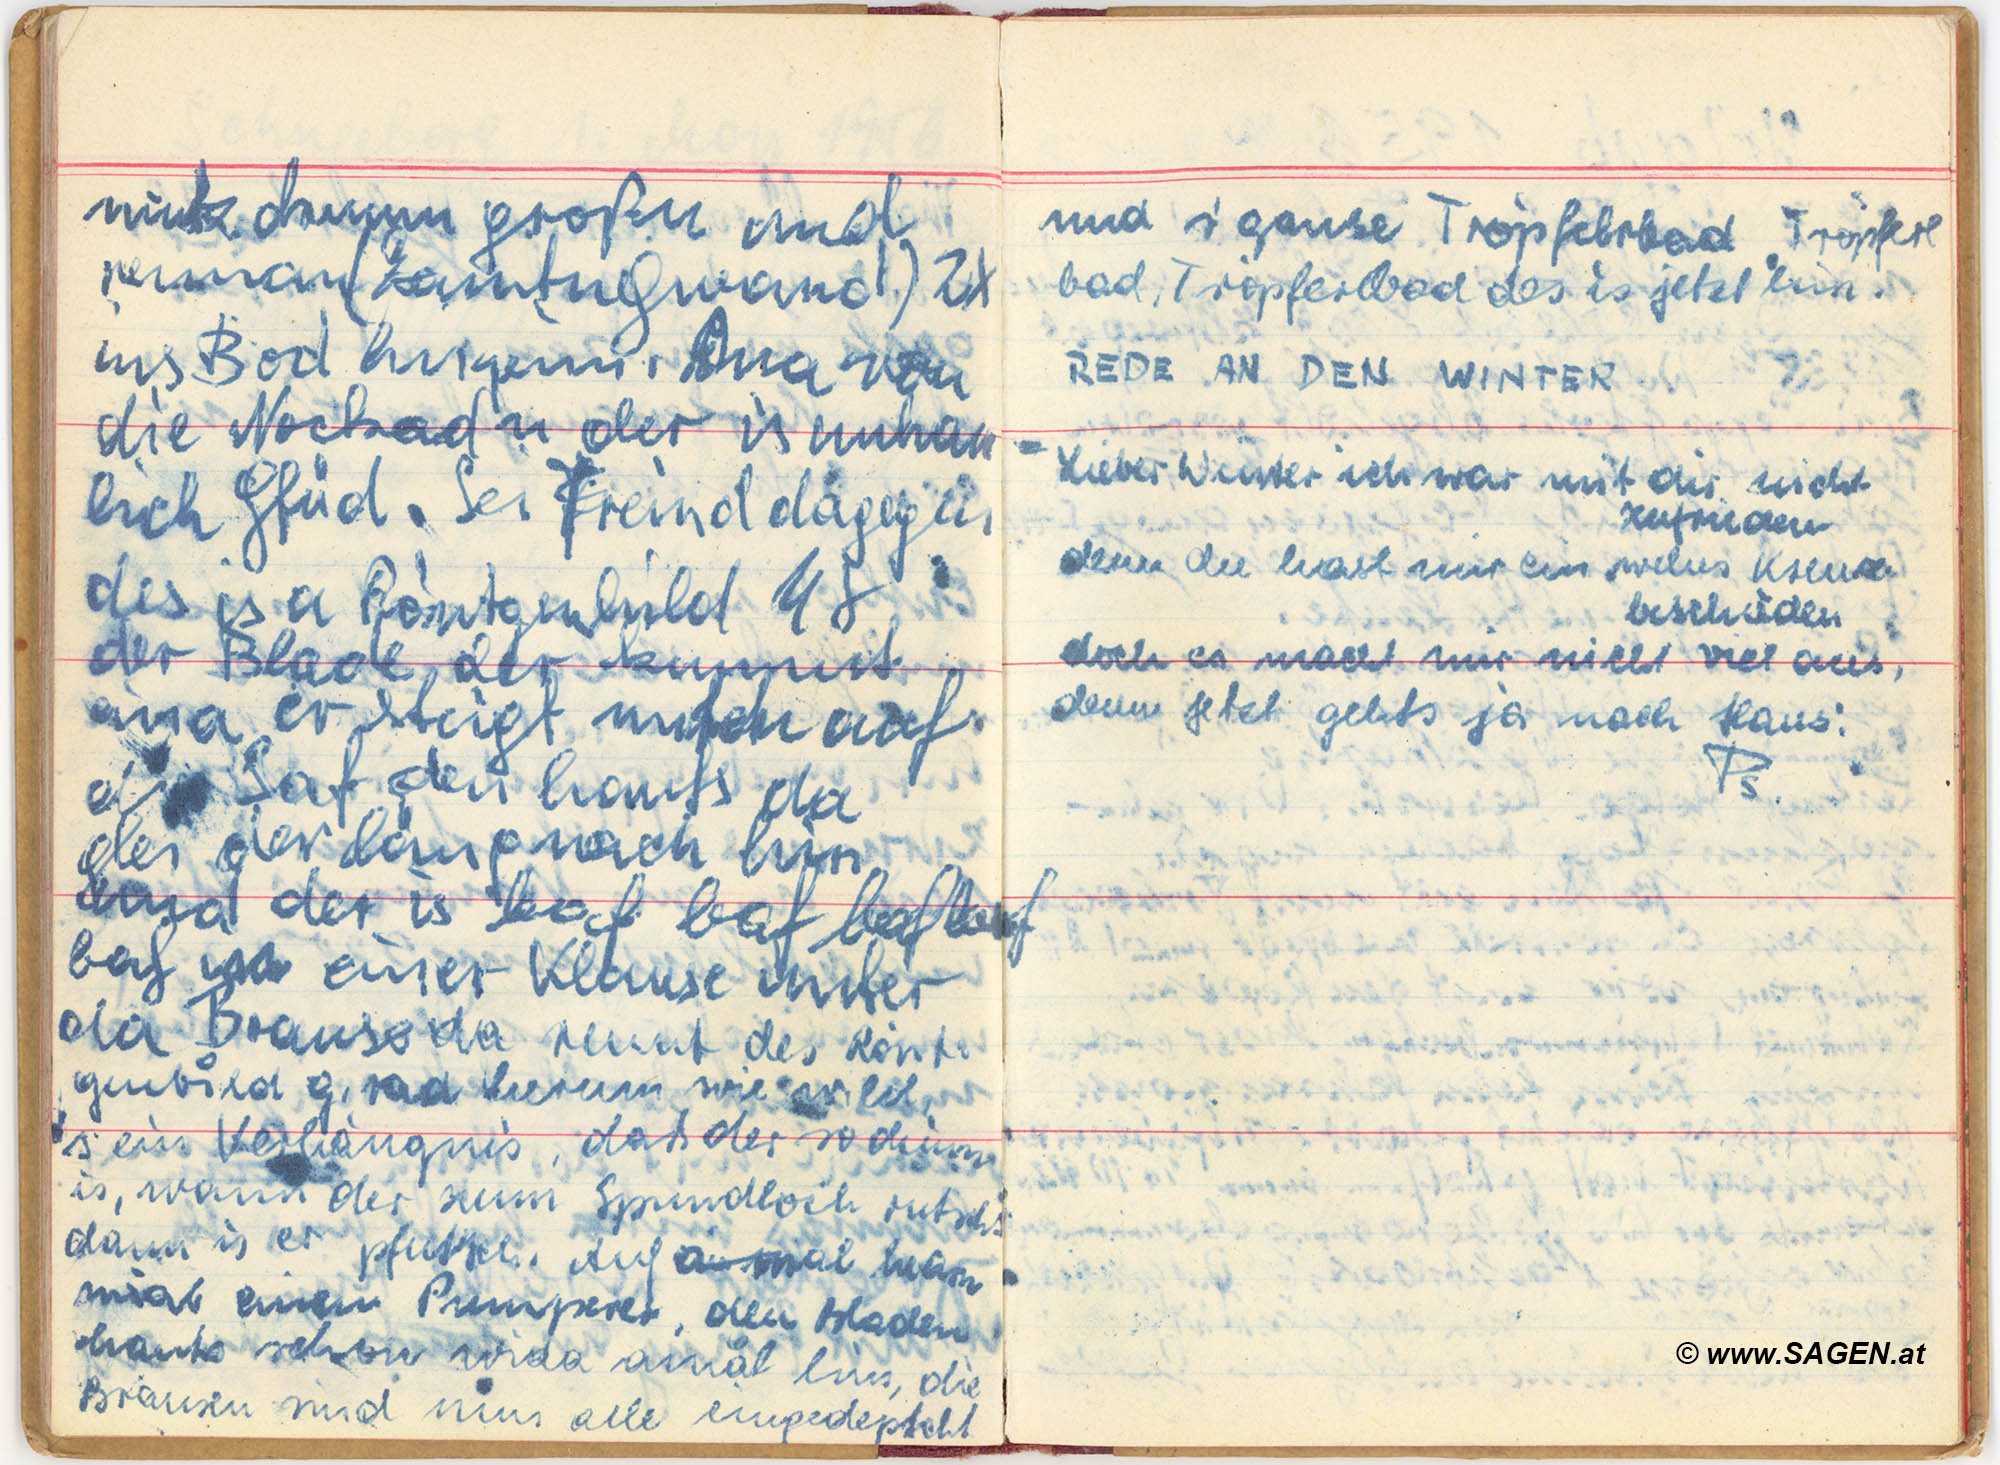 drumm großen und
2x
ins Bad
die Nackadn der is unham
lich Gfüd. Sei Freind dagegen
des is a Röntgenbild
der Blade, der kummt
ana er steigt auf
d' Saf den hauts da
der läng nach hin
und der is baf baf baf baf
baf einer Klause unter
da Brause da rennt des Rönt-
genbild g'rad herum wie wild,
's ein Verhängnis, daß der so dünn
is, wann der zum Spundloch rutscht
dann is er pfutsch. Auf
einen Pumperer, den Bladen
hauts schon wida amål hin, die
Brausen sind nun alle eingedepscht
und s ganse Tröpferlbad Tröpferl
bad, Tröpferlbad des is jetzt hin.
REDE AN DEN WINTER
Lieber Winter ich war mit dir nicht
zufrieden
denn du hast mir ein wehes Kreuz
beschieden
doch es macht mir nicht viel aus,
denn jetzt gehts ja nach Haus!
Ps.
© www.SAGEN.at